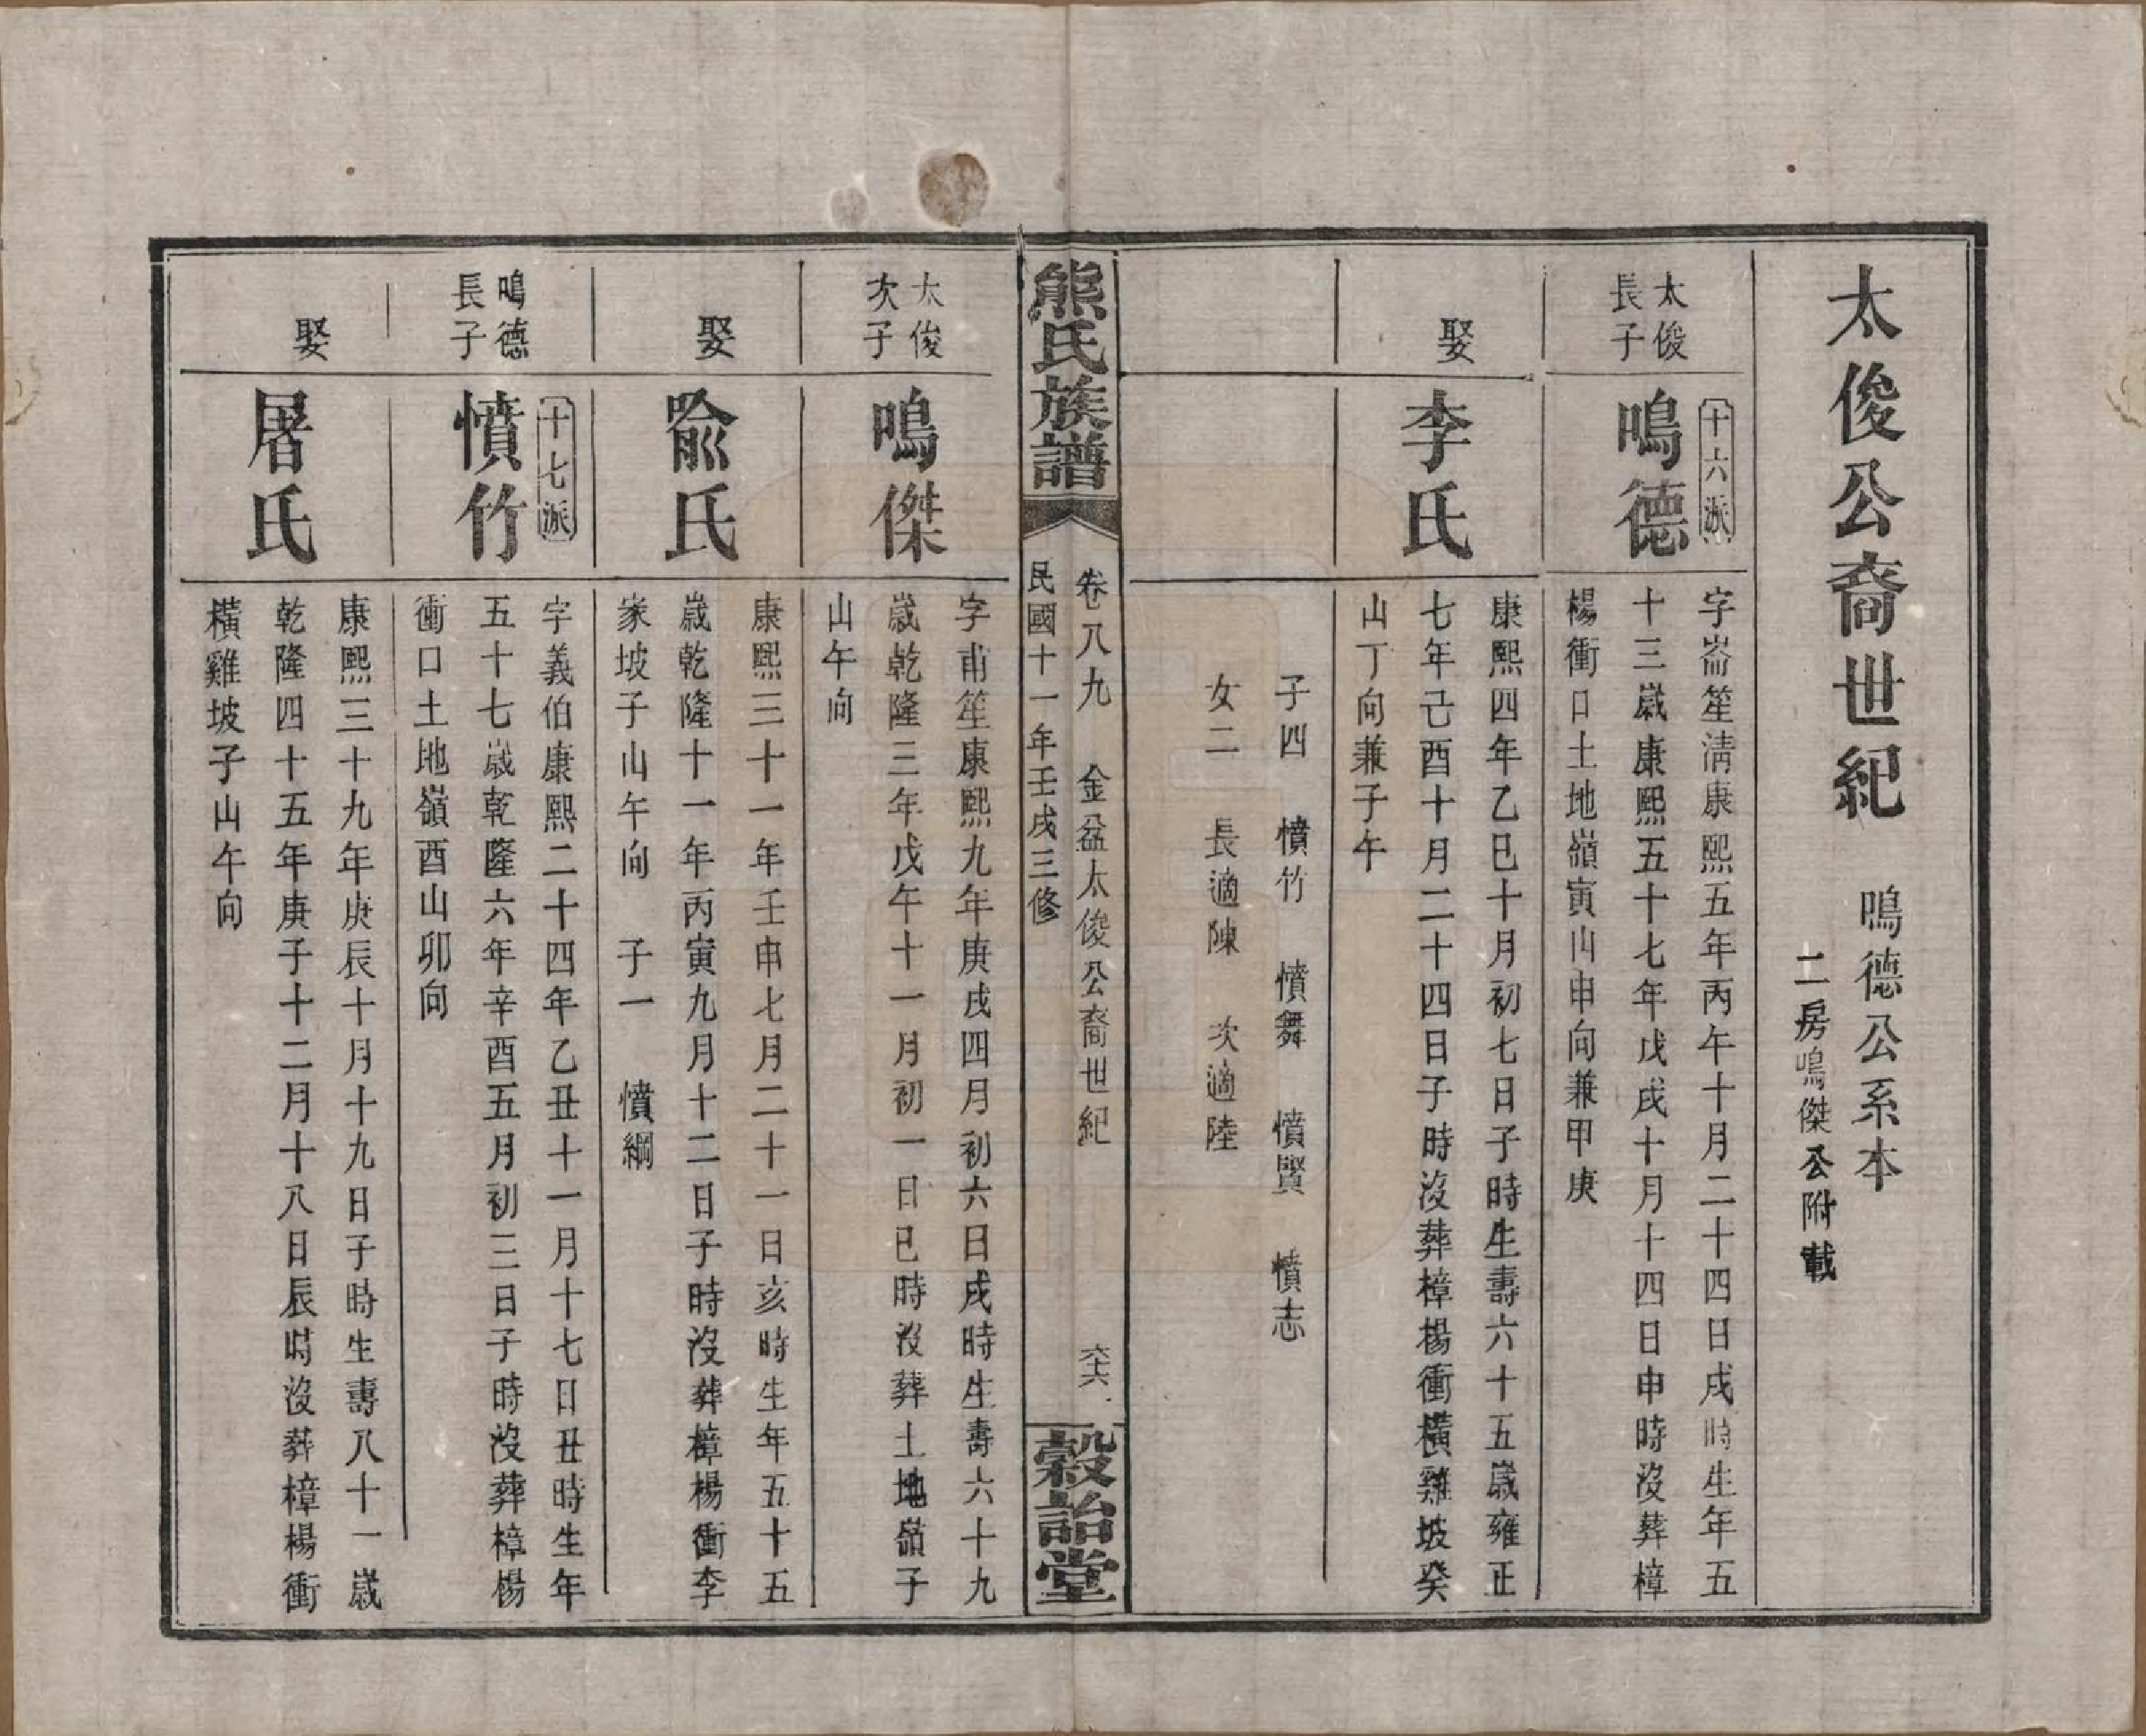 太俊公裔世紀
鳴德公系本
二房鳴傑公附載
太俊
長子
十六派
鳴德
字崙笙淸康熙五年丙午十月二十四日戌時生年五
十三歲康熙五十七年戊戌十月十四日申時沒葬樟
楊衝口土地嶺寅山申向兼甲庚
娶
李氏
康熙四年乙巳十月初七日子時生壽六十五歲雍正
七年己酉十月二十四日子時沒葬樟楊衝橫雞坡癸
山丁向兼子午
子四 憤竹 憤舞 憤賢 憤志
女二 長適陳 次適陸
熊氏族譜
卷八九 金盆太俊公裔世紀
民國十一年壬戌三修
穀詒堂
太俊
次子
鳴傑
字甫笙康熙九年庚戌四月初六日戌時生壽六十九
歲乾隆三年戊午十一月初一日巳時沒葬土地嶺子
山午向
娶
喩氏
康熙三十一年壬申七月二十一日亥時生年五十五
歲乾隆十一年丙寅九月十二日子時沒葬樟楊衝李
家坡子山午向 子一 憤綱
鳴德
長子
十七派
憤竹
字義伯康熙二十四年乙丑十一月十七日丑時生年
五十七歲乾隆六年辛酉五月初三日子時沒葬樟楊
衝口土地嶺酉山卯向
娶
屠氏
康熙三十九年庚辰十月十九日子時生壽八十一歲
乾隆四十五年庚子十二月十八日辰時沒葬樟楊衝
橫雞坡子山午向